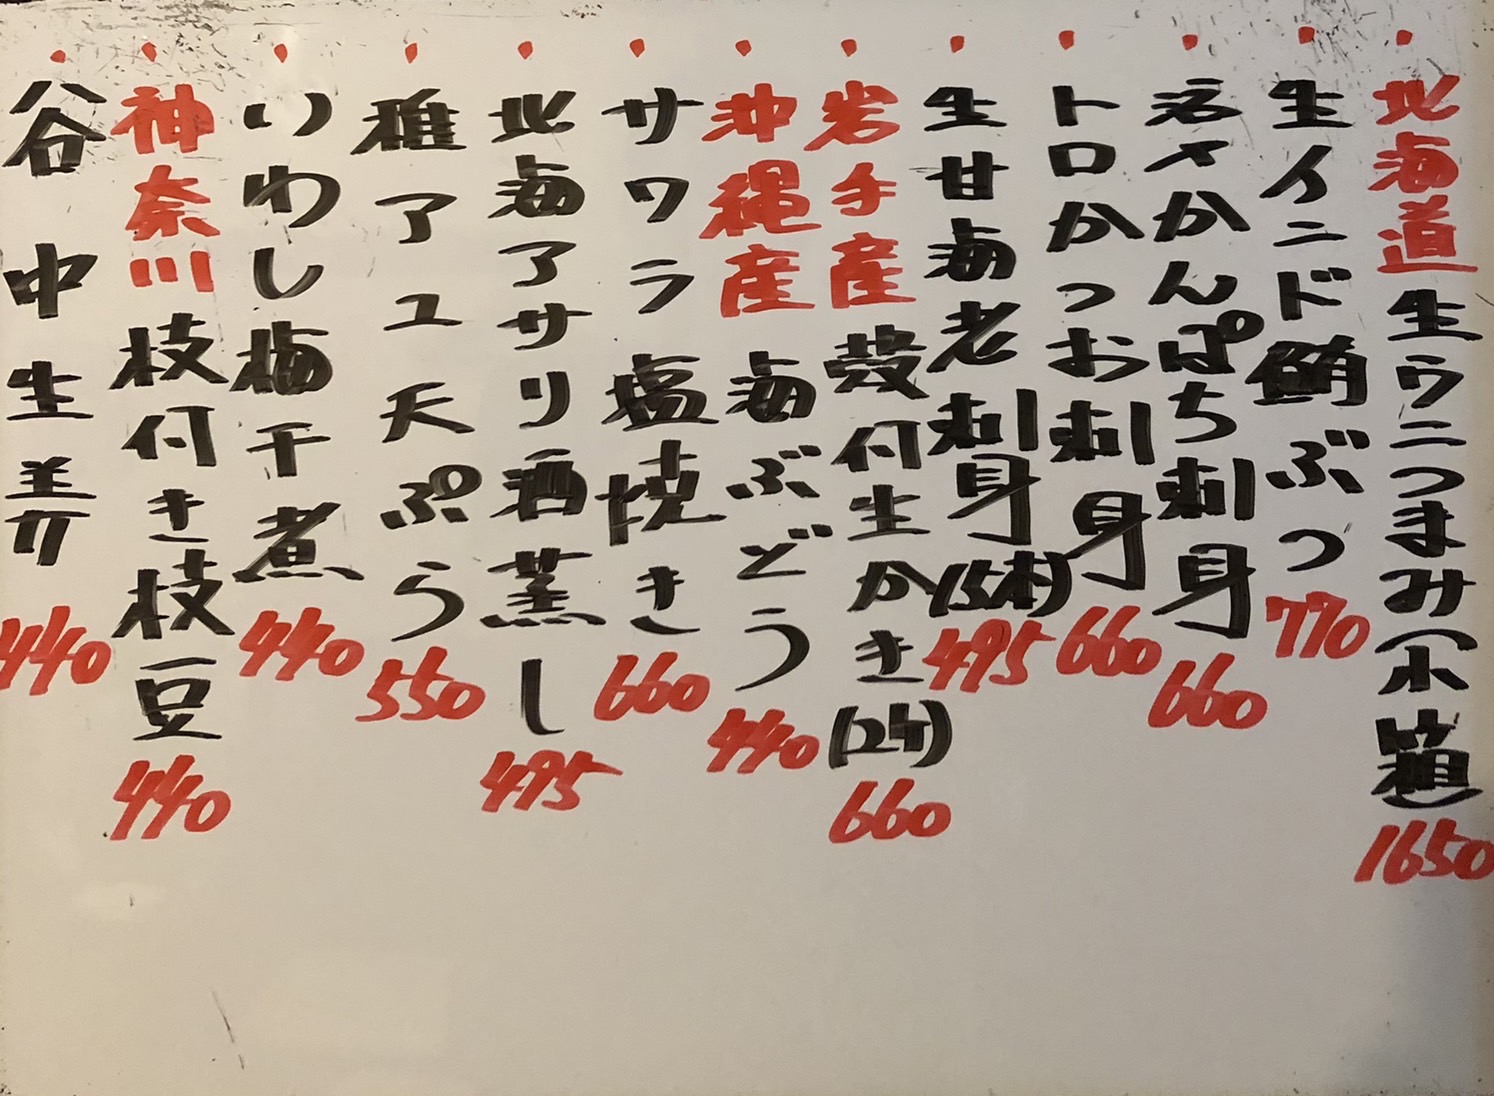 北海道生ウニつまみ(小箱)1650
生インド鮪ぶつ770
活〆かんぱち刺身660
トロかつお刺身660
生甘海老刺身(5本)495
岩手産殻付生かき(2ヶ)660
沖縄産海ぶどう440
サワラ塩焼き660
北海アサリ酒蒸し495
稚アユ天ぷら550
いわし梅干煮440
神奈川枝付き枝豆440
谷中生姜440